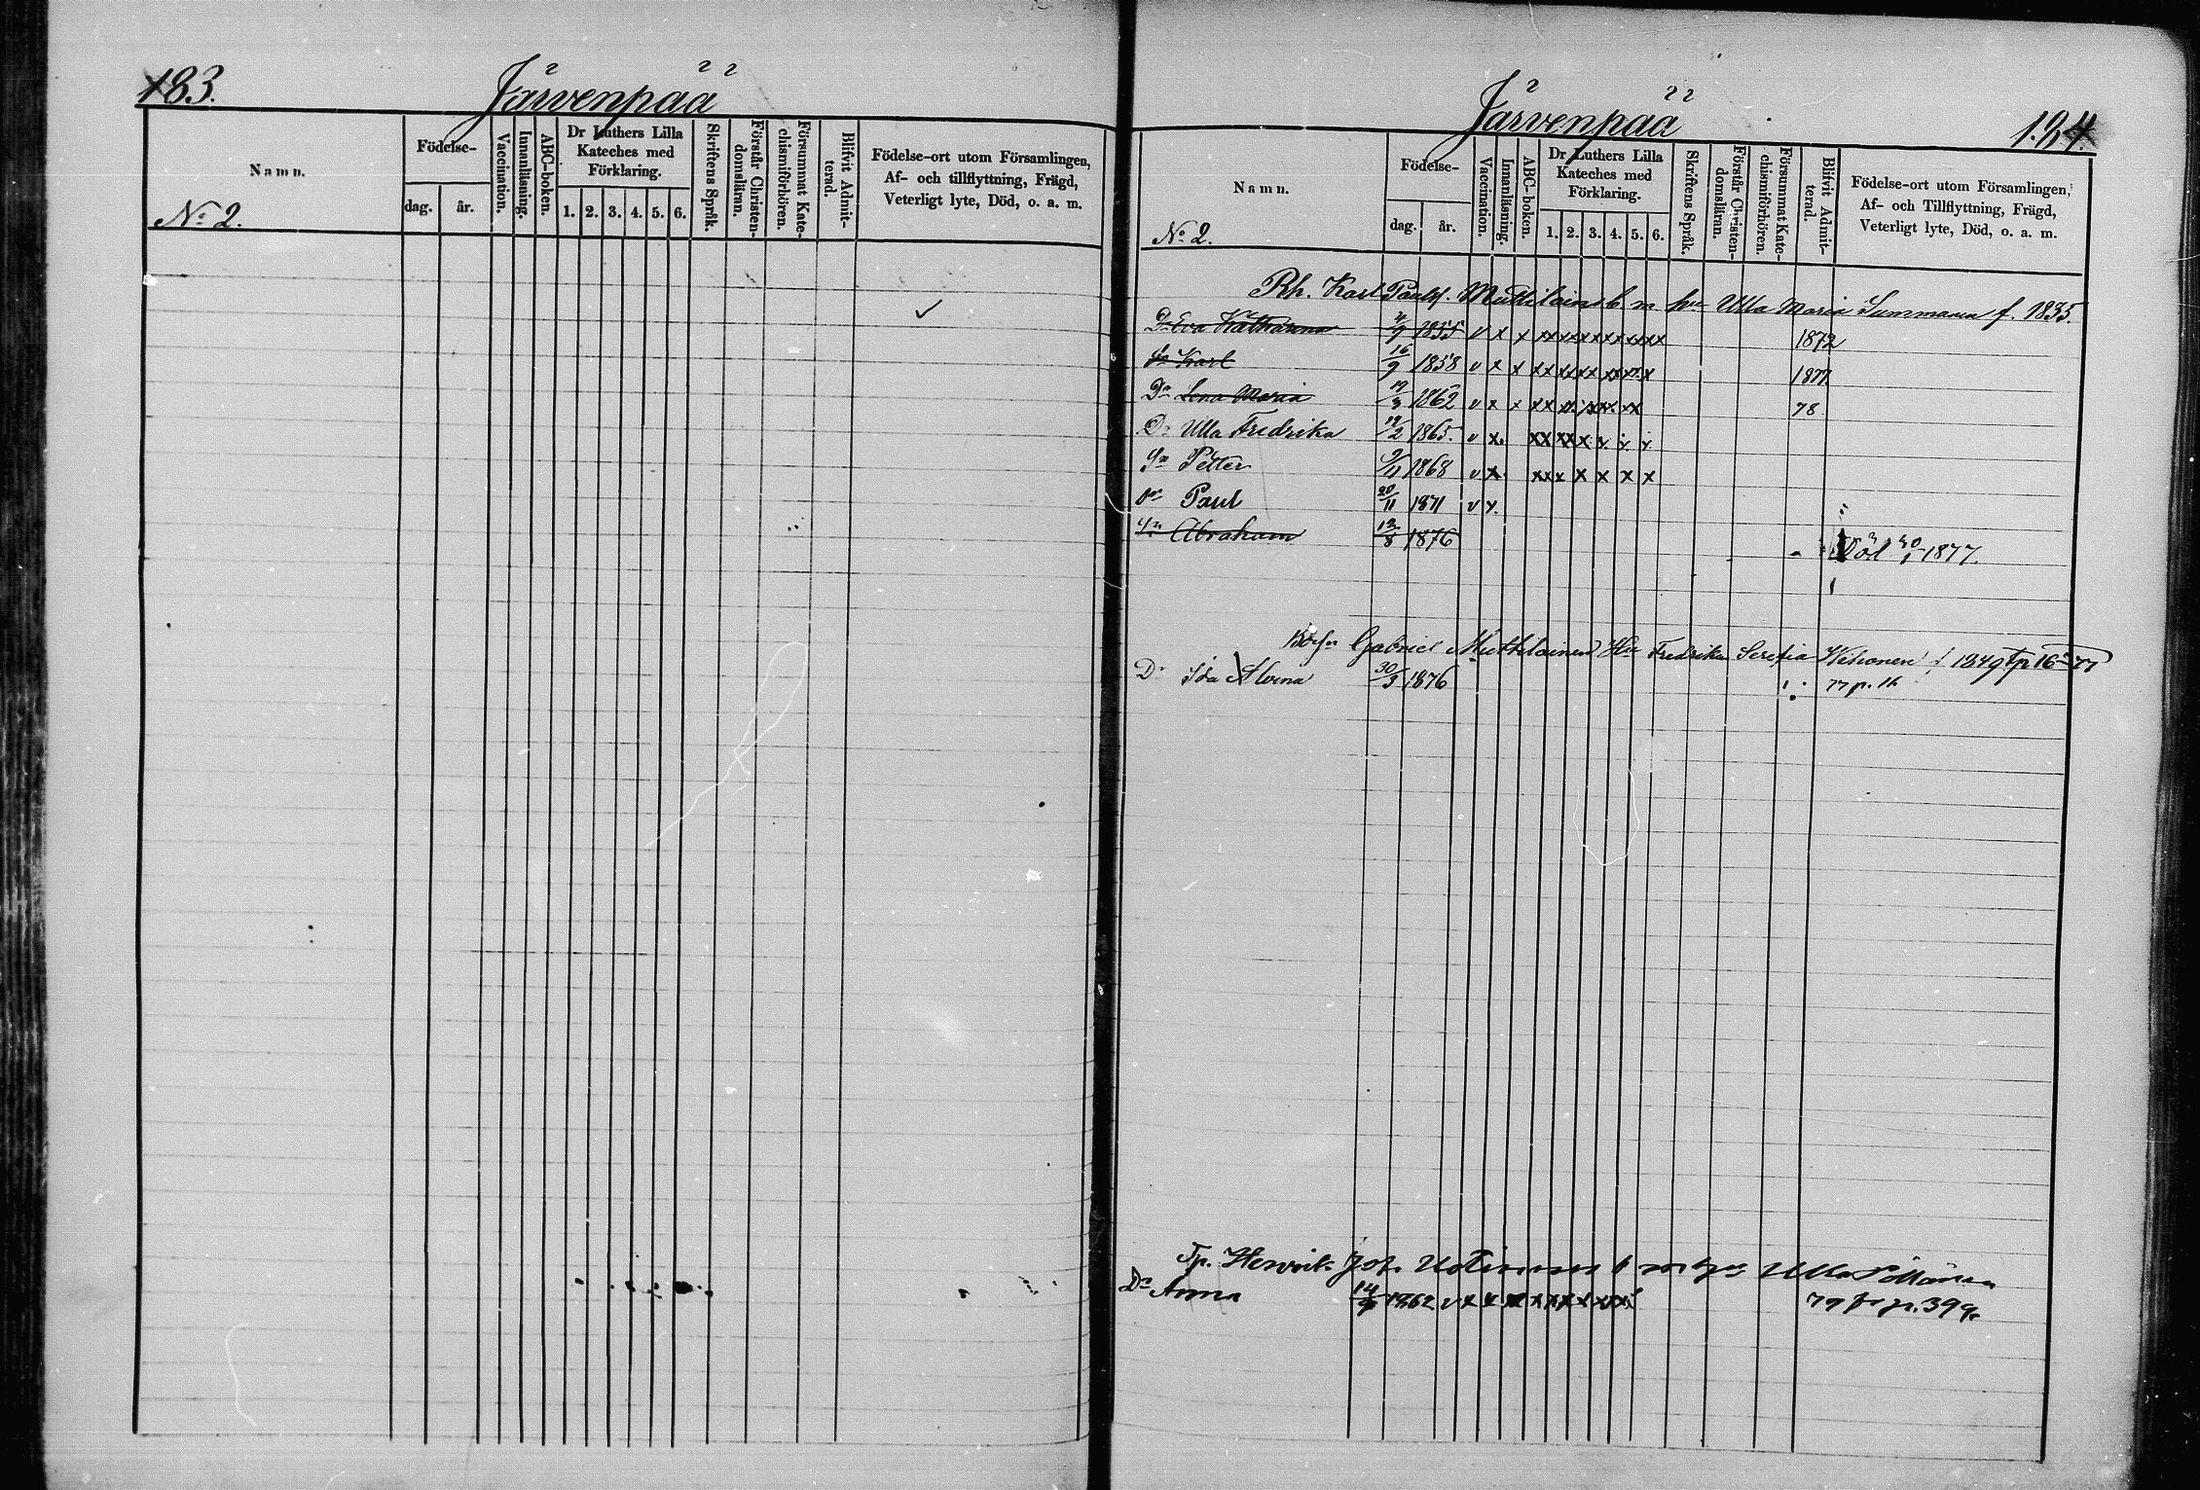 183.
Järvenpää
Namn.
Födelse-
dag.
år.
Vaccination.
Innanläsning.
ABC-boken.
Dr Luthers Lilla
Kateches med
Förklaring.
1. 2. 3. 4. 5. 6.
Skriftens Språk.
Förstår Christen-
domsläran.
Försummat Kate-
chismiförhören.
Blifvit Admit-
terad.
Födelse-ort utom Församlingen,
Af- och tillflyttning, Frägd,
Veterligt lyte, Död, o. a. m.
No 2.
Järvenpää
184
Namn.
Födelse-
dag.
år.
Vaccination.
Innanläsning.
ABC-boken.
Dr Luthers Lilla
Kateches med
Förklaring.
1. 2. 3. 4. 5. 6.
Skriftens Språk.
Förstår Christen-
domsläran.
Försummat Kate-
chismiförhören.
Blifvit Admit-
terad.
Födelse-ort utom Församlingen,
Af- och Tillflyttning, Frägd,
Veterligt lyte, Död, o. a. m.
No 2.
Rh. Karl Paulsf. Muthilains b. m. hu Ulla Maria Summanen f. 1835.
Dr Eva Katharina 1855 v x x xx xx xx xx xx xx 1872
Sn Karl 16/9 1858 v x x xx xx xx xx xx x 1877
Dr Lena Maria 19/3 1862 v x x xx 78
Dr Ulla Fredrika 12/2 1865. v x. xx xx x x x x
Sn Petter 9/11 1868 v x. xx x x x x x
Sn Paul 20/11 1871 v x.
Sn Abraham 12/8 1876 Död 1877.
Gabriel Muthilainen Hu Fredrika Serefia 1849
Dr Ida Alvina 30/3 1876 77 p. 16
Tp. Henrik Ulla Pöllänen
Dr Anna 1862 79 p. 399.